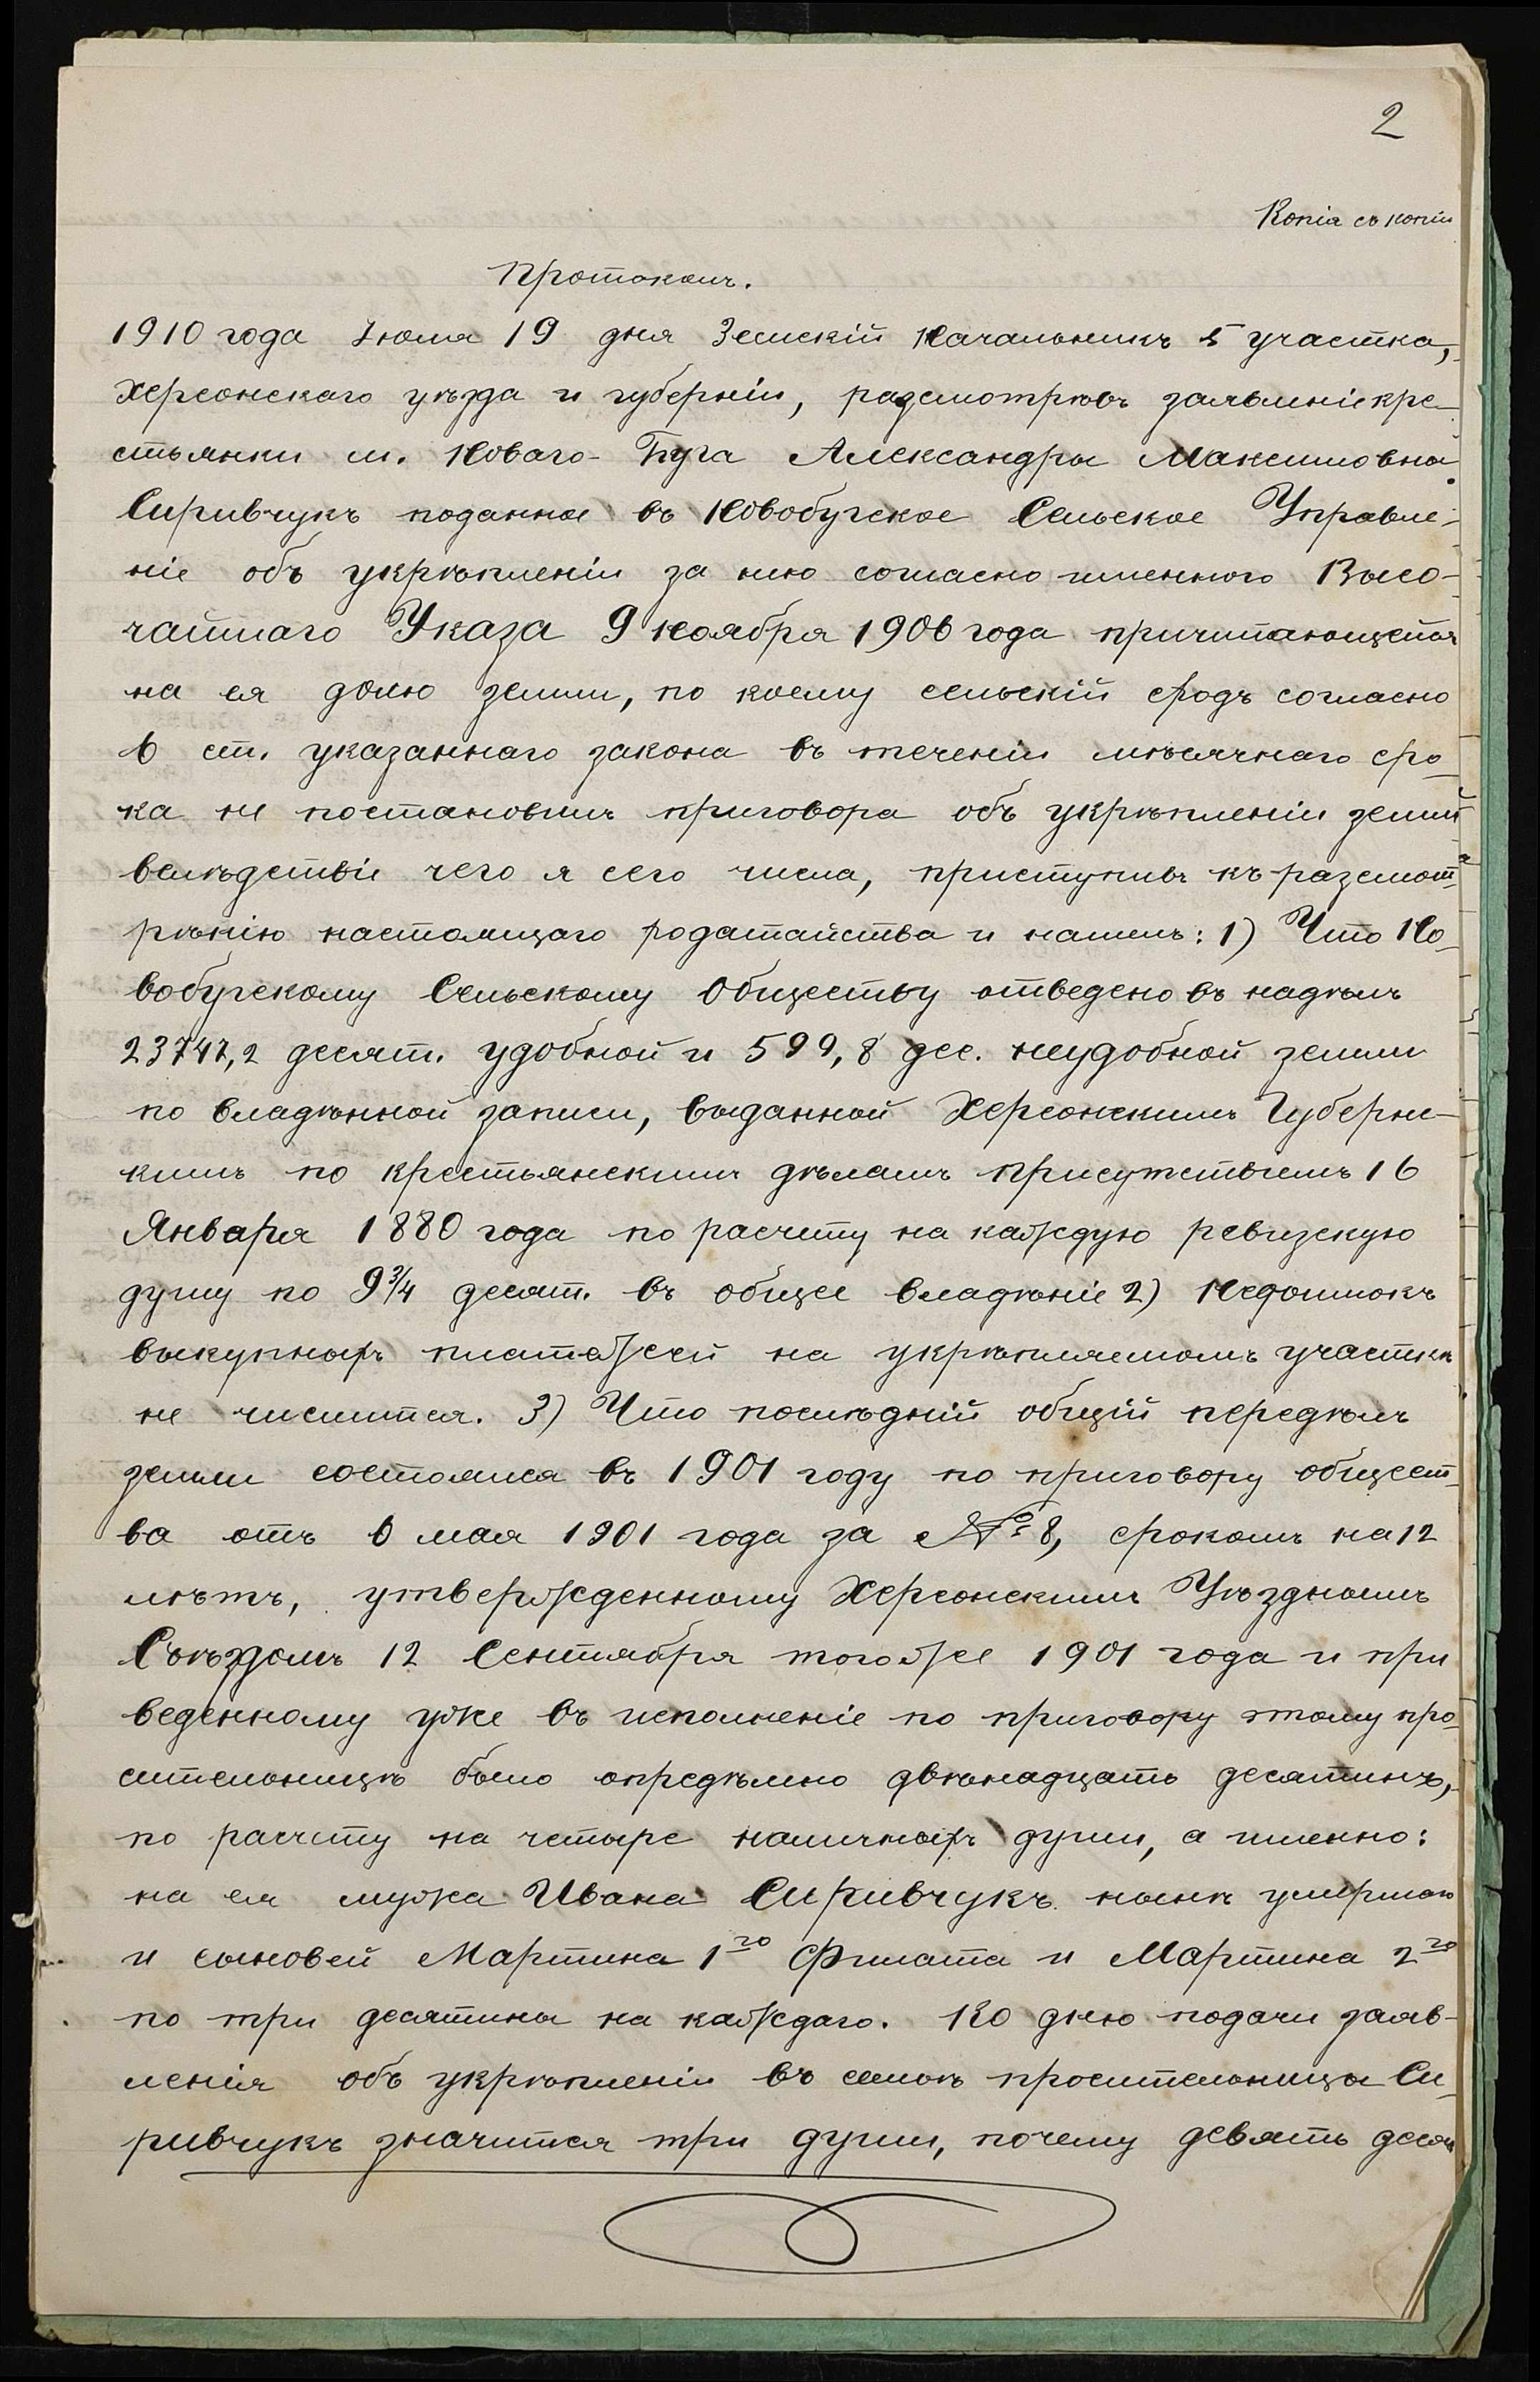 2
Копія съ копіи
Протоколъ.
1910 года Іюля 19 дня Земскій Начальникъ 5 участка,
Херсонскаго уѣзда и губерніи, разсмотрѣвъ заявленіе кре-
стьянки м. Новаго-Буга Александры Максимовны
Сиривчукъ поданное въ Новобугское Сельское Управле-
ніе объ укрѣпленіи за нею согласно именного Высо-
чайшаго Указа 9 Ноября 1906 года причитающейся
на ея долю земли, по коему сельскій сходъ согласно
6 ст. указаннаго закона въ теченіи мѣсячнаго сро-
ка не постановилъ приговора объ укрѣпленіи земли
вслѣдствіе чего я сего числа, приступивъ къ разсмот-
рѣнію настоящаго ходатайства и нашелъ: 1) Что Но-
вобугскому Сельскому Обществу отведено въ надѣлъ
23747,2 десят. удобной и 599,8 дес. неудобной земли
по владѣнной записи, выданной Херсонскимъ Губернс-
кимъ по крестьянскимъ дѣламъ присутствіемъ 16
Января 1880 года по расчету на каждую ревизскую
душу по 9¾ десят. въ общее владѣніе 2) Недоимокъ
выкупныхъ платежей на укрѣпляемомъ участкѣ
не числится. 3) Что послѣдній общій передѣлъ
земли состоялся въ 1901 году по приговору общест-
ва отъ 6 мая 1901 года за № 8, срокомъ на 12
лѣтъ, утвержденному Херсонскимъ Уѣзднымъ
Съѣздомъ 12 Сентября того же 1901 года и при
веденному уже въ исполненіе по приговору этому про-
сительницѣ было опредѣлено двѣнадцать десятинъ,
по расчету на четыре наличныхъ души, а именно:
на ея мужа Ивана Сиривчукъ нынѣ умершаго
и сыновей Мартина 1го Филата и Мартина 2го
по три десятины на каждаго. Ко дню подачи заяв-
ленія объ укрѣпленіи въ семьѣ просительницы Си-
ривчукъ значится три души, почему девять десят